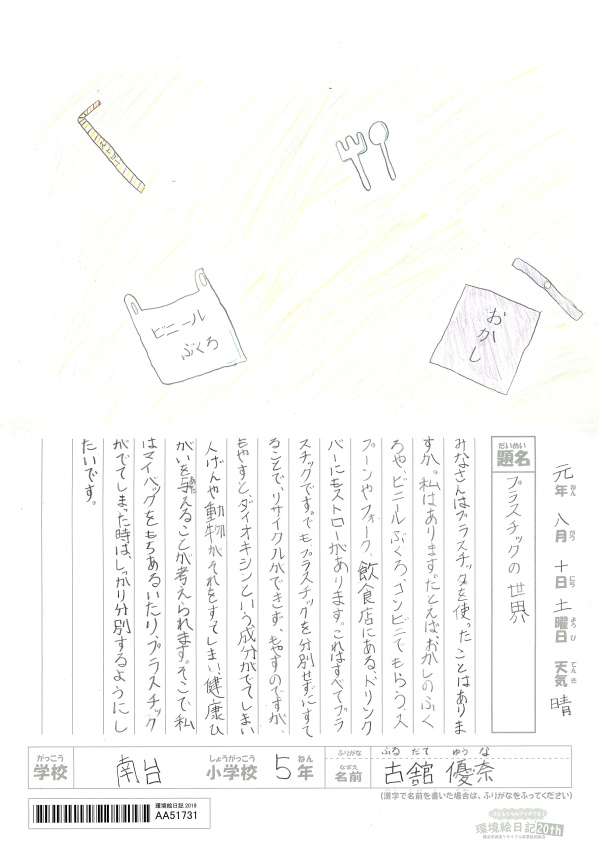 ストロー
ビニール
ぶくろ
おかし
元年 八月 十日 土曜日 天気 晴
ねん がつ にち ようび てんき
だいめい
題名 プラスチックの世界
みなさんはプラスチックを使ったことはありま
すか。私はあります。たとえば、おかしのふく
ろや、ビニールぶくろ、コンビニでもらう、ス
プーンやフォーク、飲食店にある、ドリンク
バーにもストローがあります。これはすべてプラ
スチックです。でもプラスチックを分別せずにすて
ることで、リサイクルができず、もやすのですが、
もやすと、ダイオキシンという成分がでてしまい
人げんや動物がそれをすってしまい、健康ひ
がいを与えることが考えられます。そこで私
はマイバッグをもちあるいたり、プラスチック
がでてしまった時は、しっかり分別するようにし
たいです。
がっこう しょうがっこう ねん
学校 南台 小学校 5年
ふりがな ふるだて ゆうな
なまえ
名前 古舘 優奈
(漢字で名前を書いた場合は、ふりがなをふってください)
環境絵日記 2019
AA51731
環境絵日記 20th